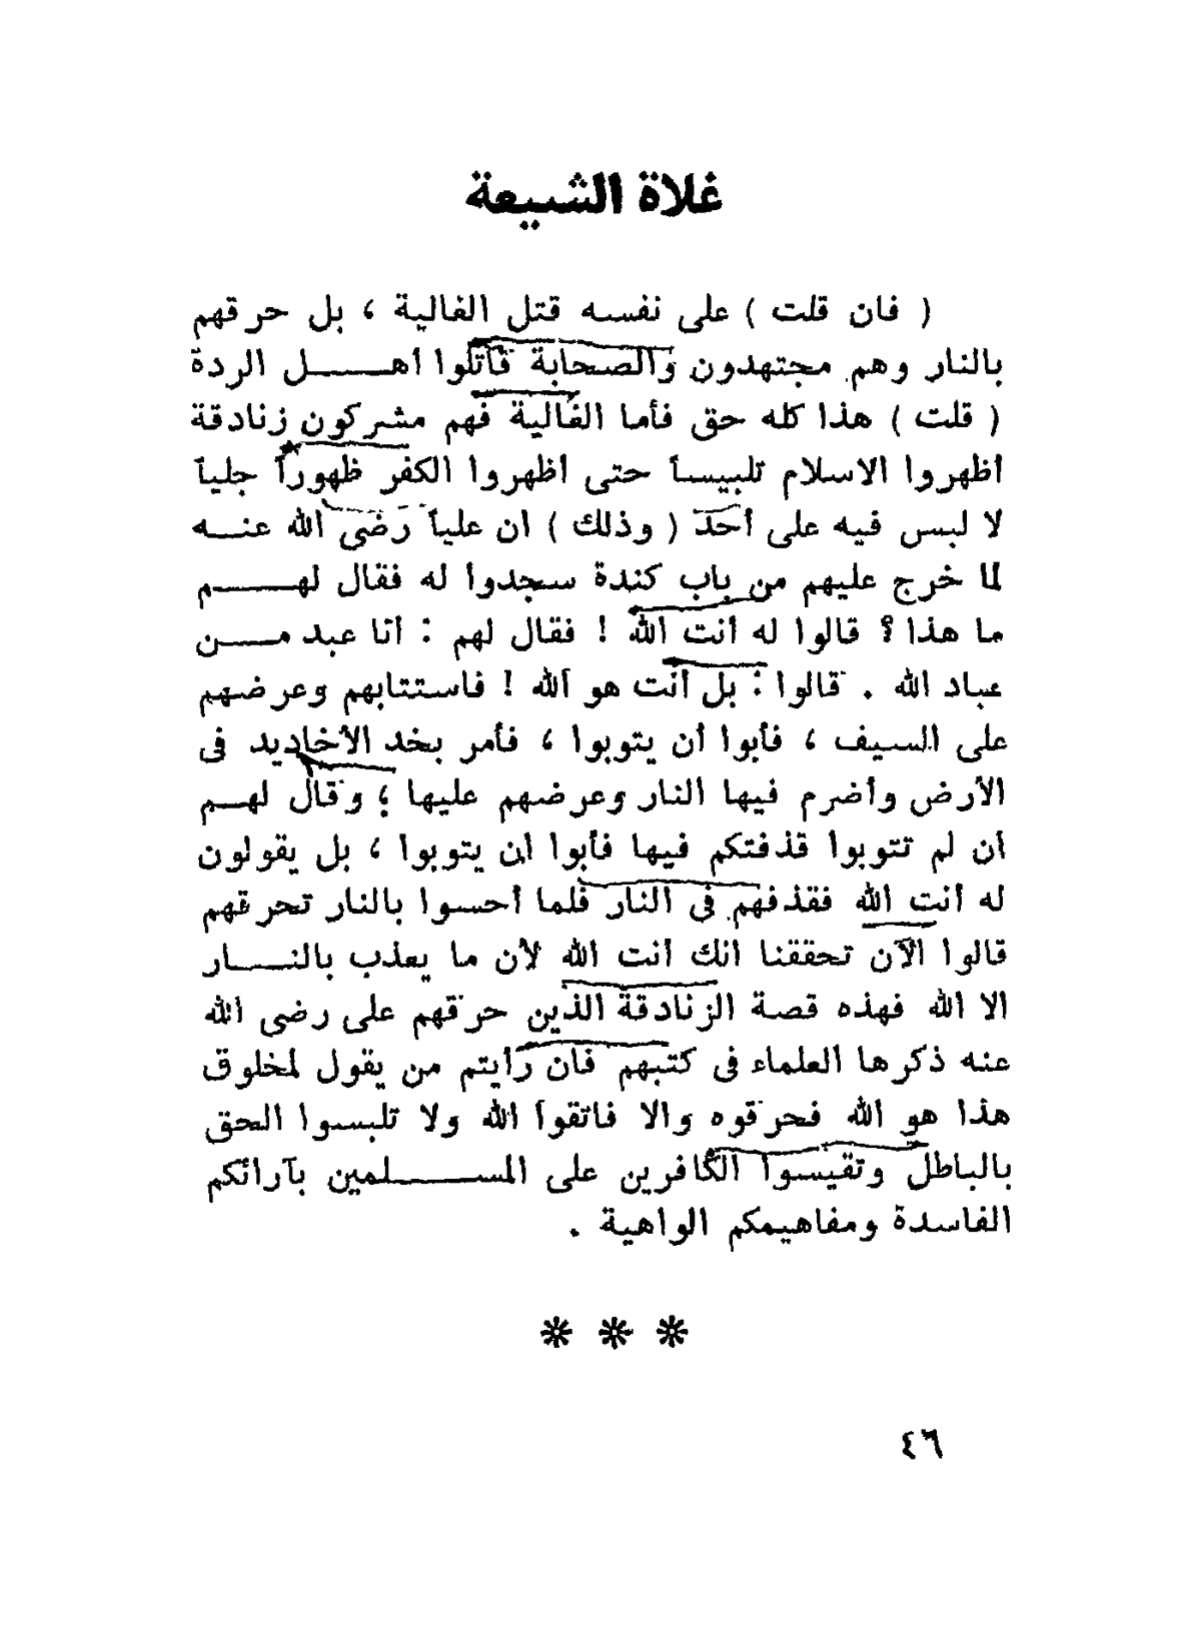 غلاة الشيعة
( فان قلت ) على نفسه قتل الغالية ، بل حرقهم
بالنار وهم مجتهدون والصحابة قاتلوا أهل الردة
( قلت ) هذا كله حق فأما الغالية فهم مشركون زنادقة
أظهروا الاسلام تلبيساً حتى أظهروا الكفر ظهوراً جلياً
لا لبس فيه على أحد ( وذلك ) ان علياً رضى الله عنه
لما خرج عليهم من باب كندة سجدوا له فقال لهم
ما هذا ؟ قالوا له أنت الله ! فقال لهم : أنا عبد من
عباد الله . قالوا : بل أنت هو الله ! فاستتابهم وعرضهم
على السيف ، فأبوا أن يتوبوا ، فأمر بخد الأخاديد فى
الأرض وأضرم فيها النار وعرضهم عليها ؛ وقال لهم
أن لم تتوبوا قذفتكم فيها فأبوا ان يتوبوا ، بل يقولون
له أنت الله فقذفهم فى النار فلما أحسوا بالنار تحرقهم
قالوا الآن تحققنا انك أنت الله لأن ما يعذب بالنار
الا الله فهذه قصة الزنادقة الذين حرقهم على رضى الله
عنه ذكرها العلماء فى كتبهم فان رأيتم من يقول لمخلوق
هذا هو الله فحرقوه والا فاتقوا الله ولا تلبسوا الحق
بالباطل وتقيسوا الكافرين على المسلمين بآرائكم
الفاسدة ومفاهيمكم الواهية .
٤٦